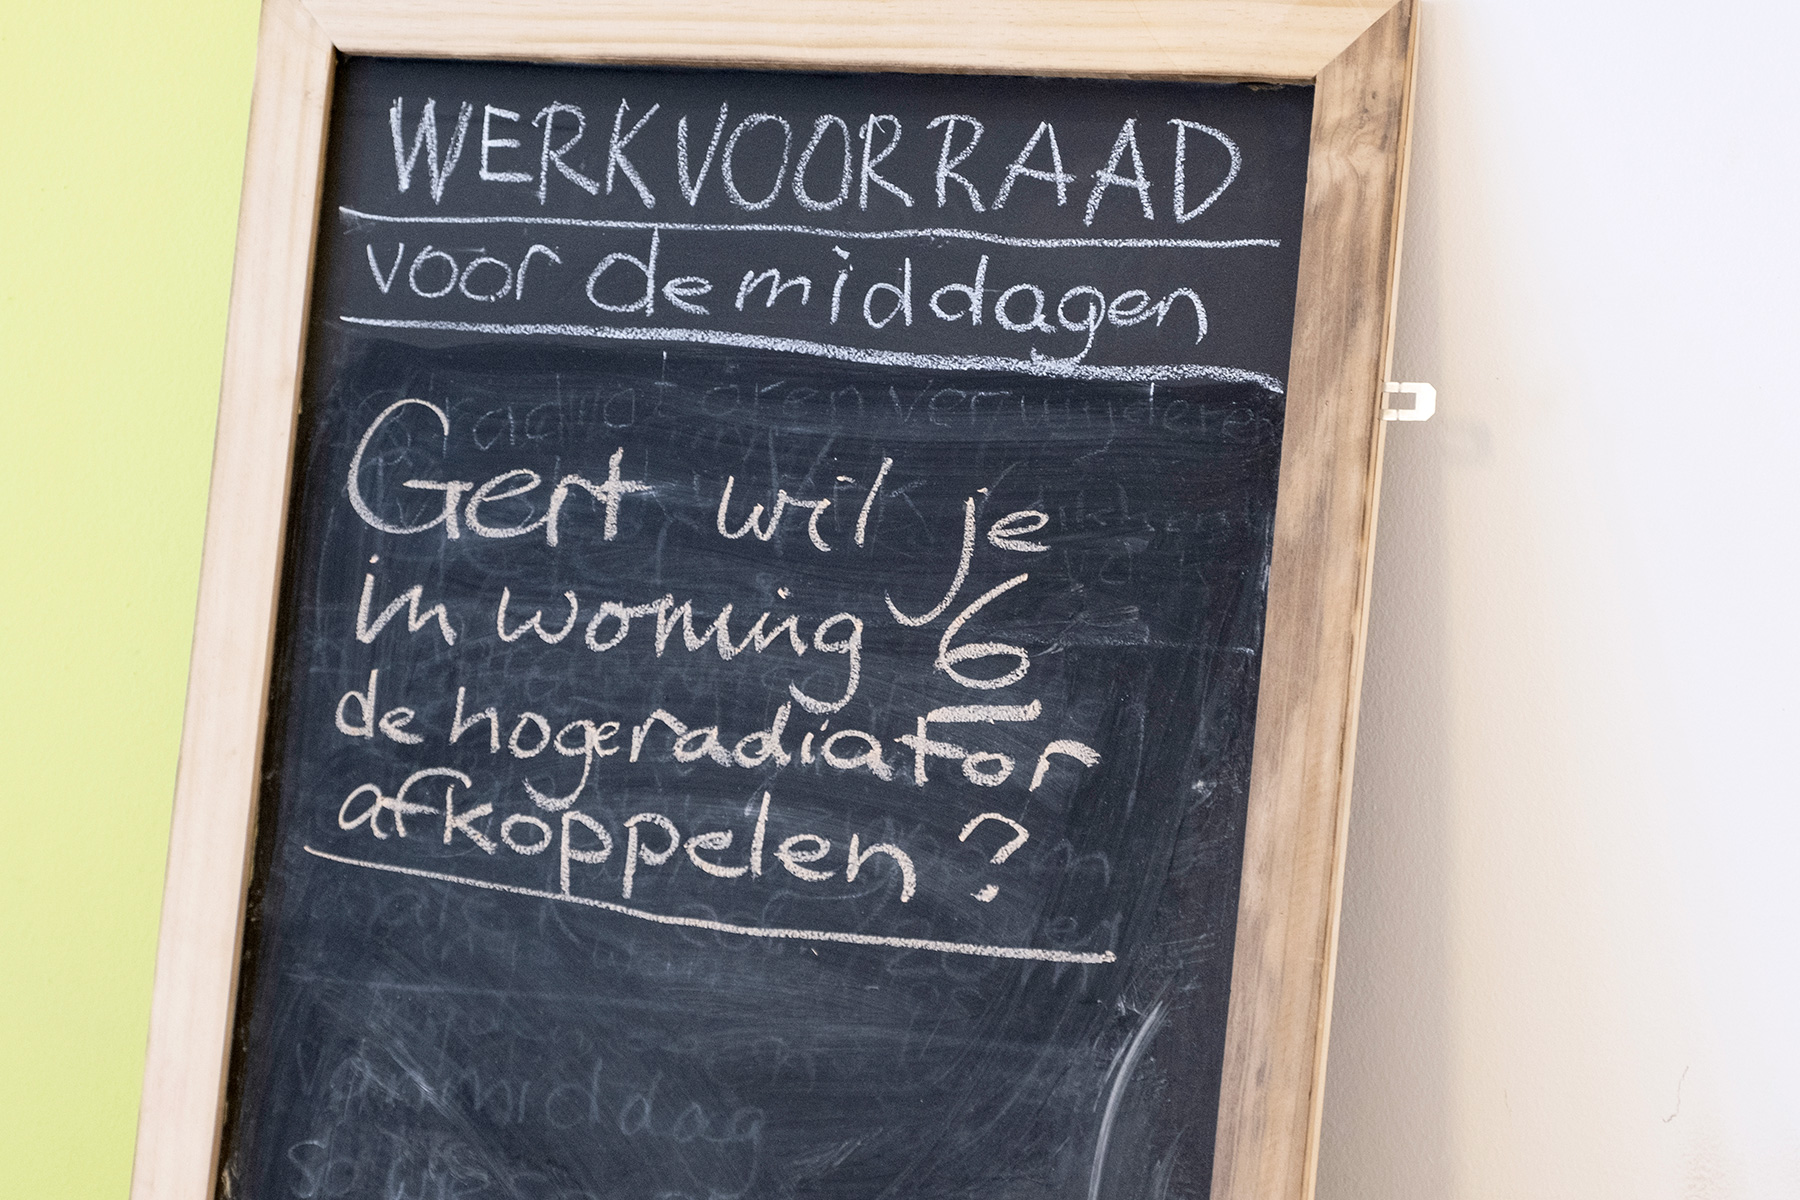 WERKVOORRAAD
voor de middagen
Gert wil je
in woning 6
de hoge radiator
afkoppelen?
middag